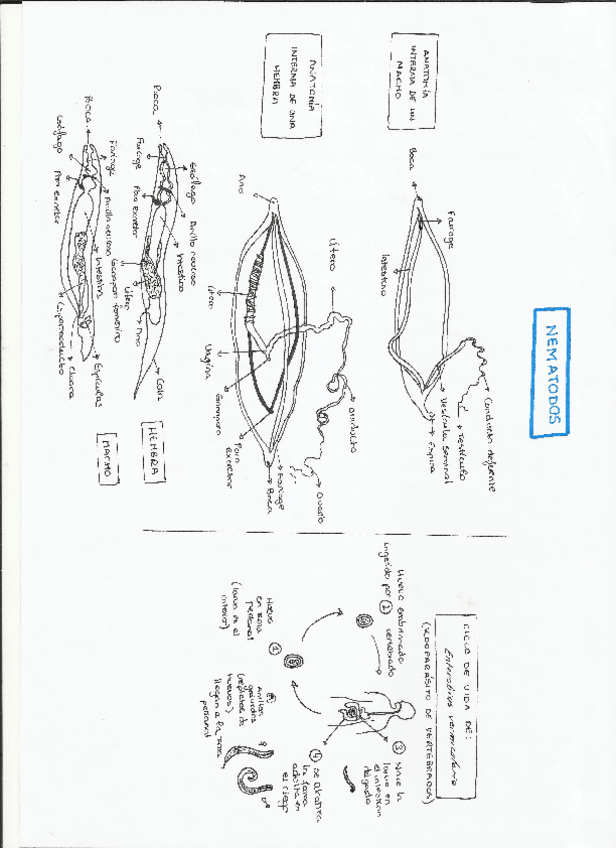 NEMATODOS
ANATOMÍA
INTERNA DE UN
MACHO
Boca
Faringe
Intestino
Conducto deferente
Testículo
Vesícula seminal
Espícula
ANATOMÍA
INTERNA DE UNA
HEMBRA
Ano
Útero
Oviducto
Ovario
Útero
Vagina
Gonoporo
Poro
excretor
Faringe
Boca
Boca
Faringe
Esófago
Anillo nervioso
Poro excretor
Intestino
Gonoporo femenino
Útero
Ano
Cola
HEMBRA
Boca
Faringe
Esófago
Anillo nervioso
Poro excretor
Intestino
Espículas
Cloaca
Espermoducto
MACHO
CICLO DE VIDA DE:
Enterobius vermicularis
(ENDOPARÁSITO DE VERTEBRADOS)
Huevo embrionado
ingerido por ② vertebrado
③ Nace la
larva en
el intestino
delgado
④ Se alcanza
la forma
adulta en
el ciego
Anillos
(repletas de
huevos)
llegan a la zona
perianal
①
Huevo
en zona
perianal
(larva en el
interior)
♀
♂